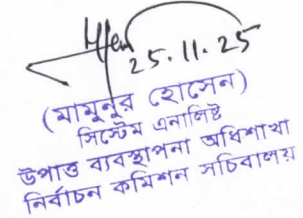 25.11.25
(মামুনুর হোসেন)
সিস্টেম এনালিষ্ট
উপাত্ত ব্যবস্থাপনা অধিশাখা
নির্বাচন কমিশন সচিবালয়